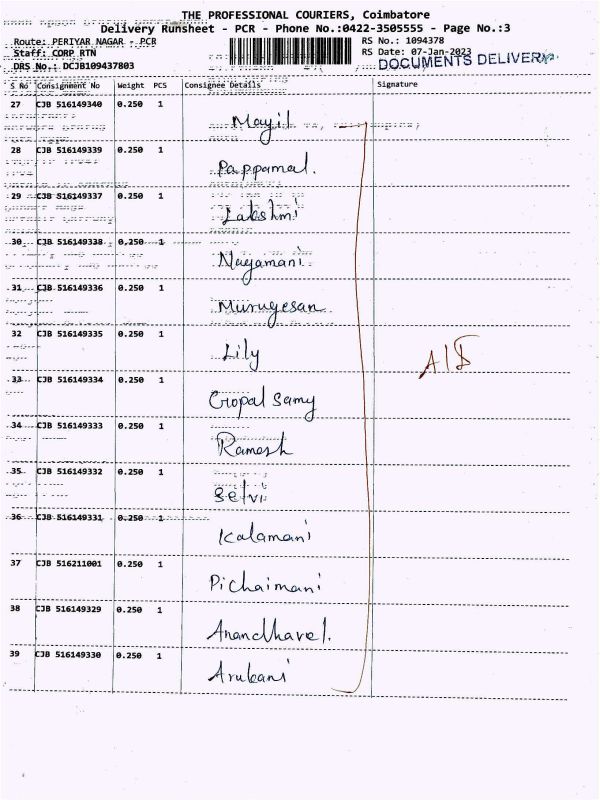 THE PROFESSIONAL COURIERS, Coimbatore
Delivery Runsheet - PCR - Phone No.:0422-3505555 - Page No.:3
Route: PERIYAR NAGAR - PCR
RS No.: 1094378
Staff: CORP RTN
RS Date: 07-Jan-2023
DRS No.: DCJB109437803
DOCUMENTS DELIVERY
S No Consignment No Weight PCS Consignee Details Signature
27 CJB 516149340 0.250 1
Mayil
28 CJB 516149339 0.250 1
Pappamal.
29 CJB 516149337 0.250 1
Lakshmi
30 CJB 516149338 0.250 1
Nagamani
31 CJB 516149336 0.250 1
Murugesan
32 CJB 516149335 0.250 1
Lily
33 CJB 516149334 0.250 1
Gopal Samy
34 CJB 516149333 0.250 1
Ramesh
35 CJB 516149332 0.250 1
Selvi
36 CJB 516149331 0.250 1
Kalamani
37 CJB 516211001 0.250 1
Pichaimani
38 CJB 516149329 0.250 1
Anandhavel.
39 CJB 516149330 0.250 1
Arukani